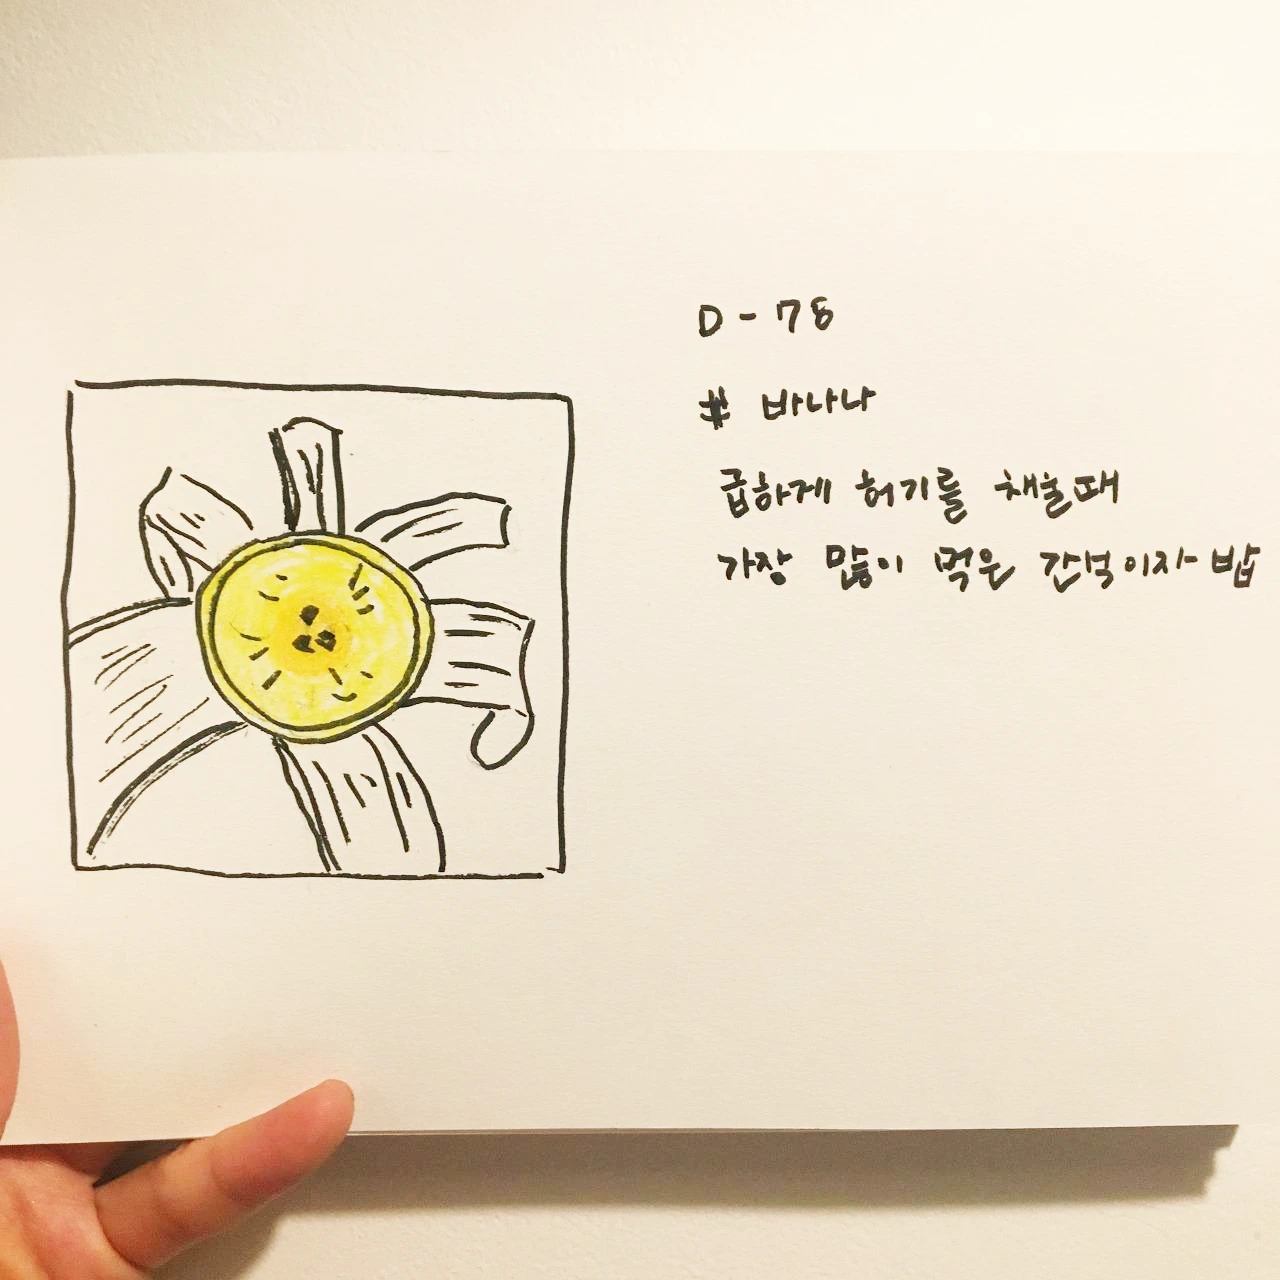 D - 78
# 바나나
급하게 허기를 채울때
가장 많이 먹은 간식이자 밥